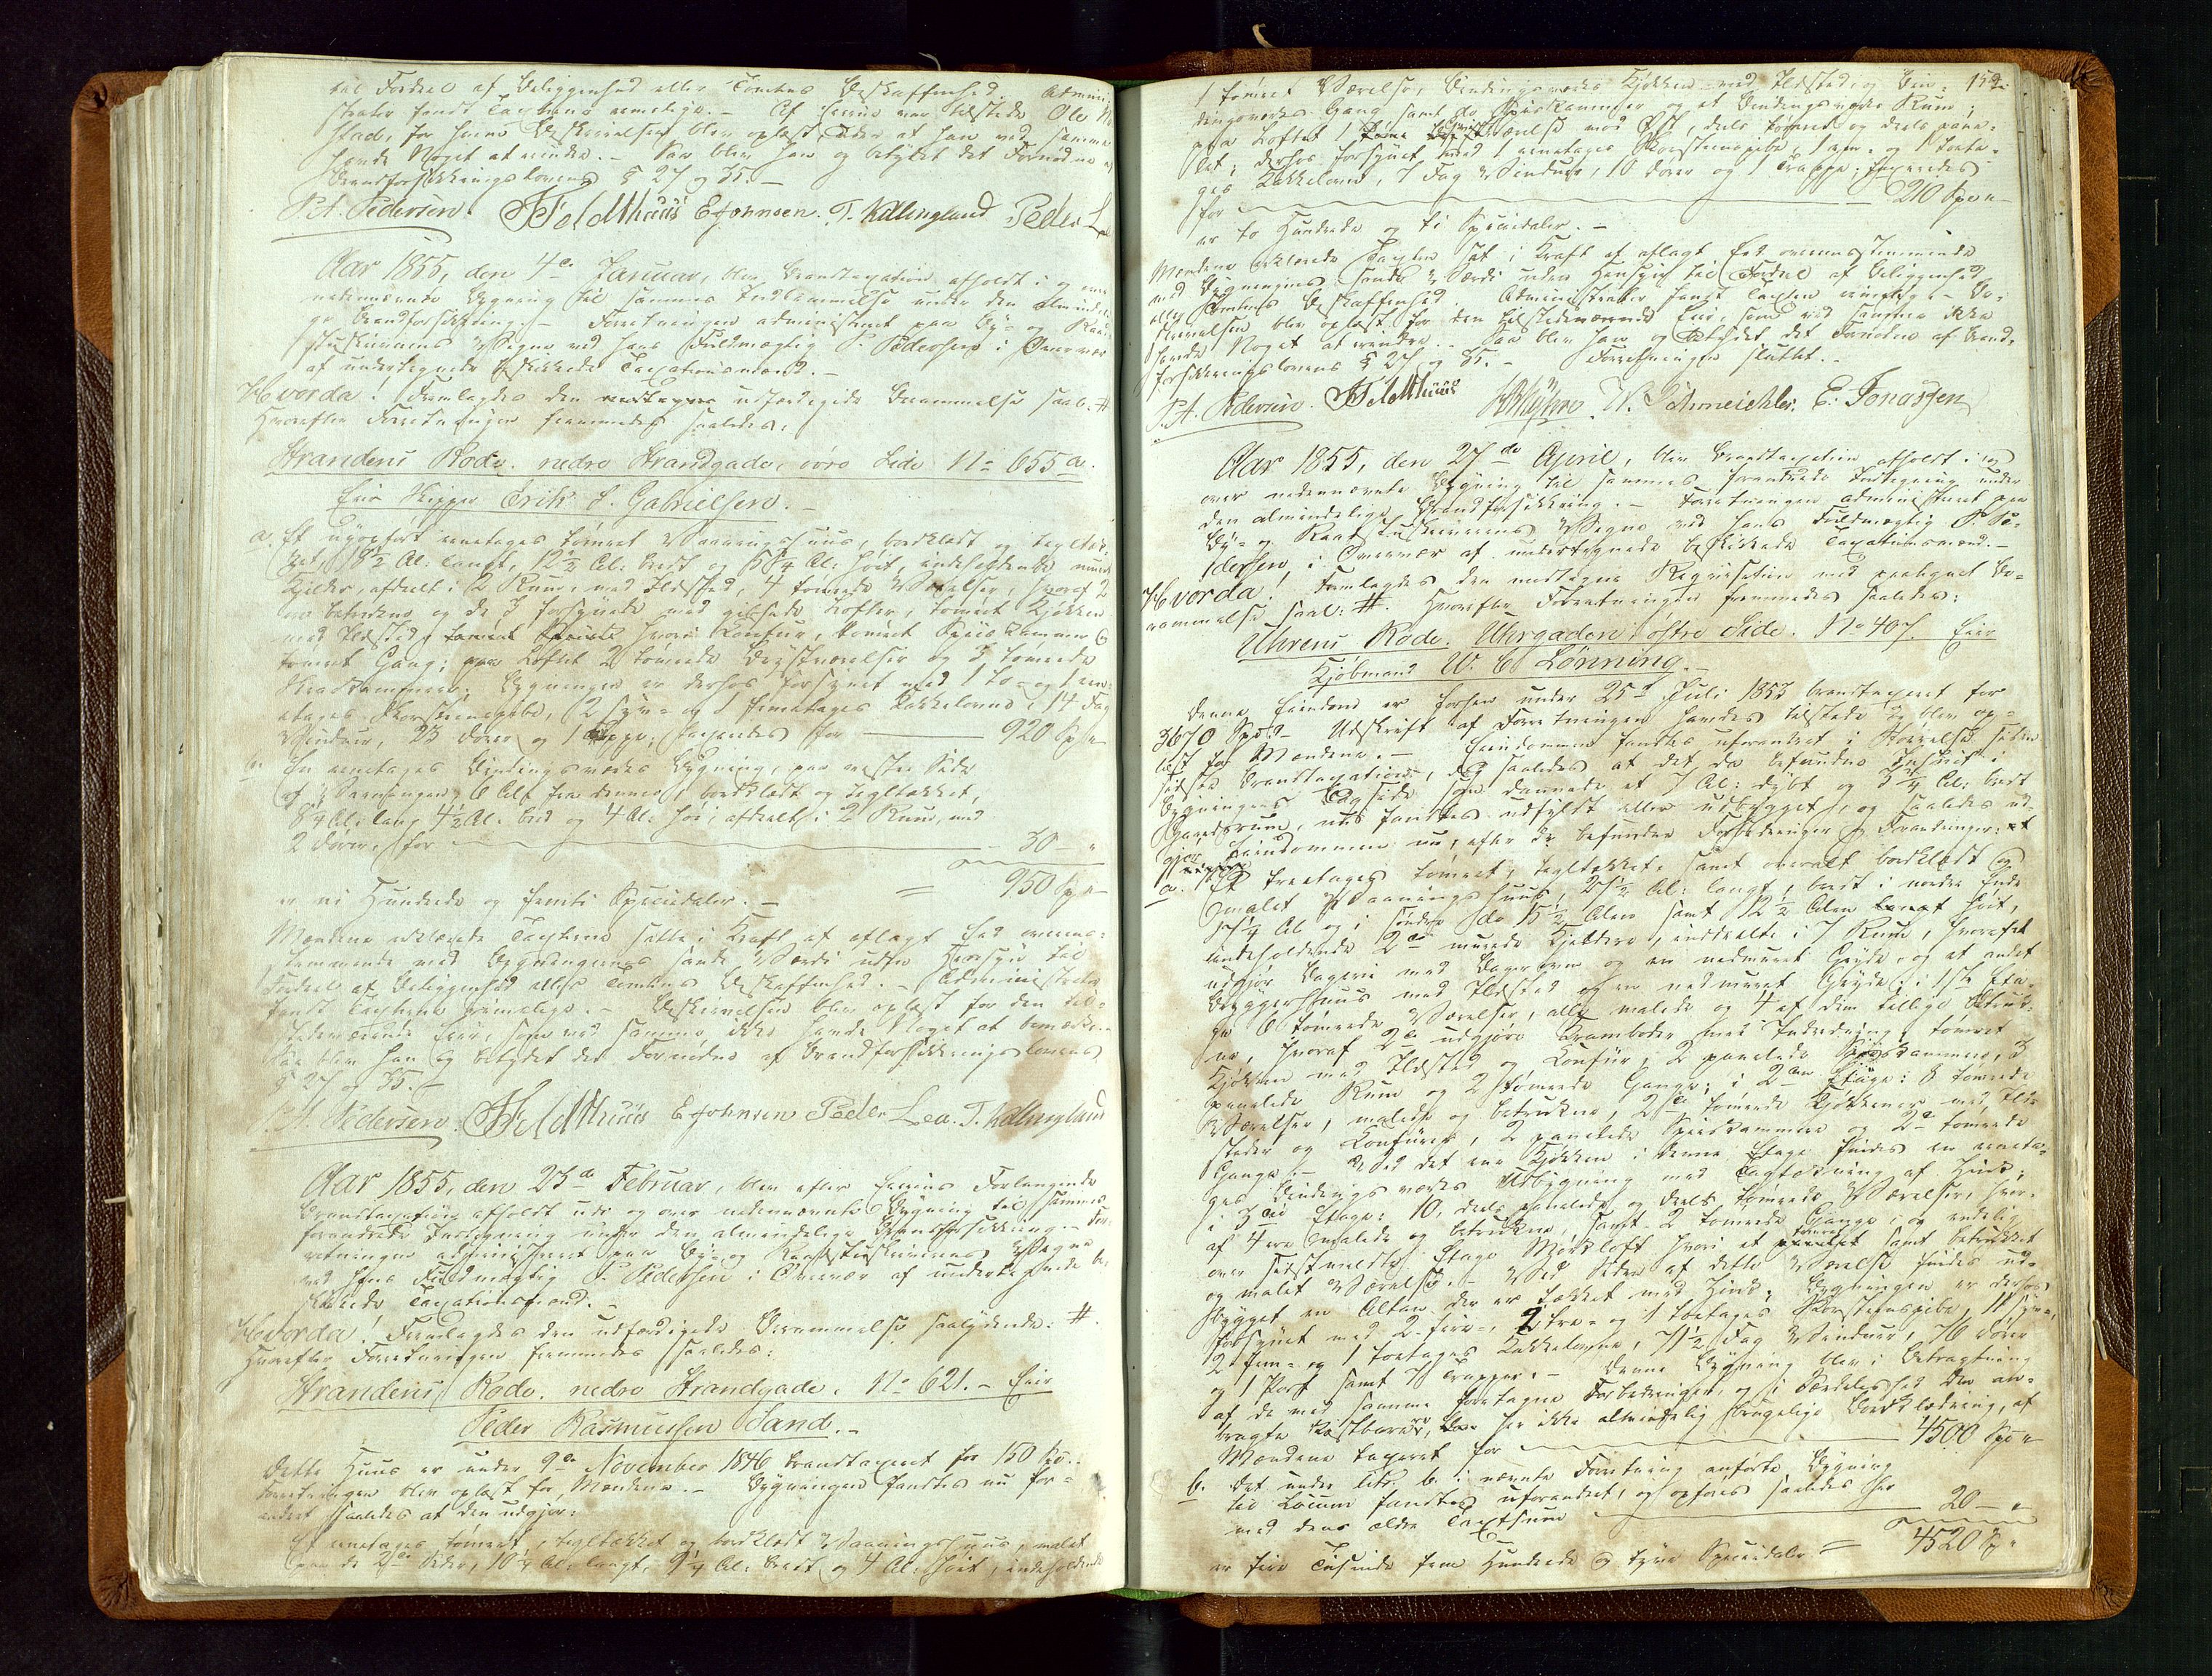 til Fordeel af Beliggenhed eller Tomtens Beskaffenhed. Admini-
strator fandt Taxterne rimelige. – Af Eierne var tilstede Ole
stad, for hvem Beskrivelsen blev oplæst uden at han ved samme
havde Noget at erindre. – Saa blev han og betydet det Fornødne af
Brandforsikkringslovens § 27 og 35. –
P. A. Pedersen. Feldthuus E Johnsen. T. Kallingland Peder L
Aar 1855, den 4de Januar, blev Brandtaxation afholdt i og over
nedennævnte Bygning til sammes Indlemmelse under den alminde-
ge Brandforsikkring. – Forretningen administreret paa By- og Raad-
stuskriverens Vegne ved hans Fuldmægtig P. Pedersen i Overvær
af undertegnede beskikkede Taxationsmænd. –
Hvorda! Fremlagdes den udfærdigede Berammelse saal: #
Hvorefter Forretningen fremmedes saaledes:
Strandens Rode. nedre Strandgade, øvre Side No 655 a.
Eier Skipper Erik S. Gabrielsen. –
a. Et nyopført eenetages tømret Vaaningshuus, bordklædt og tegltæk-
ket, 18½ Al: langt, 12½ Al: bredt og 5¾ Al: høit, indeholdende muret
Kjelder, afdeelt i 2 Rum, med Ildsted, 4 tømrede Værelser, hvoraf 2
ere betrukne og de 3 forsynede med gibsede Lofter, tømret Kjøkken
med Ildsted, hvori Comfur, tømret Spiiskammer &
tømret Gang; paa Loftet 2 tømrede Qvistværelser og 3 tømrede
Bygningen er derhos forsynet med 1 to- og 1 een-
etages Skorsteenspibe, 2 tre- og 1 femetages Kakkelovne, 14 Fag
Vinduer, 23 Dører og 1 Trappe; taxeredes for – 920 Spd "
b. En eenetages Bindingsværks Bygning, paa vestre Side
af Vaaningen, 6 Al: fra denne, bordklædt og tegltækket,
8¼ Al: lang, 4½ Al: bred og 4 Al: høi, afdeelt i 2 Rum, med
2 Dører, for – 30 – "
= 950 Sp "
er ni Hundrede og femti Speciedaler. –
Mændene erklærede Taxterne satte i Kraft af aflagt Eed overeens-
stemmende med Bygningernes sande Værdi uden Hensyn til
Fordeel af Beliggenhed eller Tomtens Beskaffenhed. – Administrator
fandt Taxterne rimelige. – Beskrivelsen blev oplæst for den til-
stedeværende Eier, som ved samme ikke havde Noget at bemærke. –
Saa blev han og betydet det Fornødne af Brandforsikkringslovens
§ 27 og 35. –
P. A. Pedersen. Feldthuus E Johnsen Peder Lea. T. Kallingland
Aar 1855, den 23de Februar, blev efter Eierens Forlangende
Brandtaxation afholdt udi og over nedennævnte Bygning til sammes
forandrede Indtegning under den almindelige Brandforsikkring. – For-
retningen administreret paa By- og Raadstuskriverens Vegne
ved hans Fuldmægtig P. Pedersen i Overvær af undertegnede be-
skikkede Taxationsmænd. –
Hvorda! Fremlagdes den udfærdigede Berammelse saalydende: #.
Hvorefter Forretningen fremmedes saaledes:
Strandens Rode. nedre Strandgade. No 621. – Eier
Peder Rasmussen Sand. –
Dette Huus er under 9de November 1846 brandtaxeret for 150 Spd.
Forretningen blev oplæst for Mændene. – Bygningen fandtes nu for-
andret saaledes at den udgjør:
Et eenetages tømret, tegltækket og bordklædt Vaaningshuus, malet
paa de 2de Sider, 10¼ Al: langt, 9¼ Al: bredt og 4 Al: høit, indeholdende
1 tømret Værelse, Bindingsværks Kjøkken med Ildsted, og Bin- 152.
dingsværks Gang samt do Spiiskammer og et Bindingsværks Rum;
paa Loftet 1 Værelse mod Øst, deels tømret og deels pane-
let; derhos forsynet med 1 eenetages Skorsteenspibe, 1 een- og 1 toeta-
ges Kakkelovn, 7 Fag Vinduer, 10 Dører og 1 Trappe; taxeredes
for – 210 Spd "
er to Hundrede og ti Speciedaler. –
Mændene erklærede Taxten sat i Kraft af aflagt Eed overeensstemmende
med Bygningens sande Værdi uden Hensyn til Fordeel af Beliggenhed
eller Tomtens Beskaffenhed. Administrator fandt Taxten rimelig. – Be-
skrivelsen blev oplæst for den tilstedeværende Eier, som ved samme ikke
havde Noget at erindre. – Saa blev han og betydet det Fornødne af Brand-
forsikkringslovens § 27 og 35. – Forretningen sluttet. –
P. A. Pedersen. Feldthuus W. Schmeichler. E. Jonassen
Aar 1855, den 27de April, blev Brandtaxation afholdt i og
over nedennævnte Bygning til sammes forandrede Indtegning under
den almindelige Brandforsikkring. – Forretningen administreret paa
By- og Raadstuskriverens Vegne ved hans Fuldmægtig P. Pe-
dersen, i Overvær af undertegnede beskikkede Taxationsmænd. –
Hvorda! Fremlagdes den modtagne Requisition med paategnet Be-
rammelse saal: #. Hvorefter Forretningen fremmedes saaledes:
Uhrens Rode. Uhrgaden østre Side. No 407. Eier
Kjøbmand W. C. Lønning. –
Denne Eiendom er forhen under 25de Juli 1853 brandtaxeret for
3670 Spd. – Udskrift af Forretningen havdes tilstede og blev op-
læst for Mændene. – Eiendommen fandtes uforandret i Størrelse siden
sidste Brandtaxation, dog saaledes at det da befundne Indsnit i
Bygningens Bagside, som dannede et 7 Al: dybt og 3¼ Al: bredt
Gaardsrum, nu fandtes udfyldt eller udbygget, og saaledes ud-
gjør Eiendommen nu, efter de befundne Forbedringer og Forandringer:
a. Et treetages tømret, tegltækket, samt overalt bordklædt og
malet Vaaningshuus, 27½ Al: langt, bredt i nordre Ende
17¼ Al og i søndre do 15½ Alen samt 12½ Alen høit,
indeholdende 2de murede Kjeldere, inddeelte i 7 Rum, hvoraf et
udgjør Bageri med Bagerovn og en nedmuret Gryde, og et andet
Bryggerhuus med Ildsted og en nedmuret Gryde; i 1ste Eta-
ge 6 tømrede Værelser, alle malede og 4 af dem tillige betruk-
ne, hvoraf 2de udgjøre Kramboder med Indredning, tømret
Kjøkken med Ildsted og Comfur, 2 panelede Spiiskammere, 3
panelede Rum og 2 tømrede Gange; i 2den Etage: 8 tømrede
Værelser, malede og betrukne, 2de tømrede Kjøkkener med Ild-
steder og Comfurer, 2 panelede Spiiskammere og 2de tømrede
Gange. – Ved det ene Kjøkken i denne Etage findes en eeneta-
ges Bindingsværks Udbygning med Tagtækning af Zink;
i 3die Etage: 10, deels panelede og deels tømrede Værelser, hvor-
af 4 ere malede og betrukne, samt 2 tømrede Gange; og endelig
over sidstmeldte Etage Mørkloft hvori et tømret samt betrukket
og malet Værelse. – Ved Siden af dette Værelse findes ud-
bygget en Altan der er tækket med Zink. Bygningen er derhos
forsynet med 2 fire-, 2 tre- og 1 toetages Skorsteenspibe, 11 tre-,
2 fem- og 1 toetages Kakkelovne, 71½ Fag Vinduer, 76 Dører
og 1 Port samt 7 Trapper. – Denne Bygning blev i Betragtning
af de med samme foretagne Forbedringer, og i Særdeleshed den an-
bragte kostbarere, her ikke almindelig brugelige Bordklædning, af
Mændene taxeret for – 4500 Spd "
b. Det under Litr. b. i nævnte Forretning anførte Bygning
til Locum fandtes uforandret, og opføres saaledes her
med dens ældre Taxtsum – 20 – "
er fire Tusinde fem Hundrede og tyve Speciedaler = 4520 Sp "